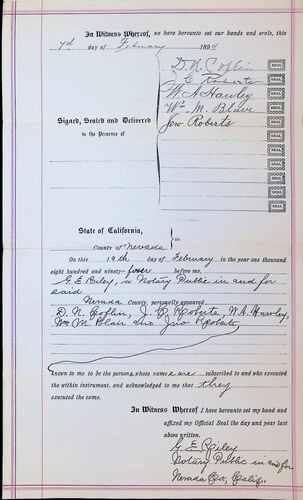 In Witness Whereof, we have hereunto set our hands and seals, this
7th day of February 1894
D. N. Coflin SEAL
J. G. Roberts SEAL
W. A. Hawley SEAL
Wm M. Blair SEAL
Jno Roberts SEAL
Signed, Sealed and Delivered SEAL
in the Presence of SEAL
SEAL
SEAL
SEAL
SEAL
State of California,
County of Nevada } ss
On this 19th day of February in the year one thousand
eight hundred and ninety-four before me,
G. E. Riley, a Notary Public in and for
said
Nevada County, personally appeared
D. N. Coflin, J. G. Roberts, W. A. Hawley,
Wm M Blair and Jno Roberts
known to me to be the persons whose names are subscribed to and who executed
the within instrument, and acknowledged to me that they
executed the same.
In Witness Whereof I have hereunto set my hand and
affixed my Official Seal the day and year last
above written.
G. E. Riley
Notary Public in and for
Nevada Co, Calif.